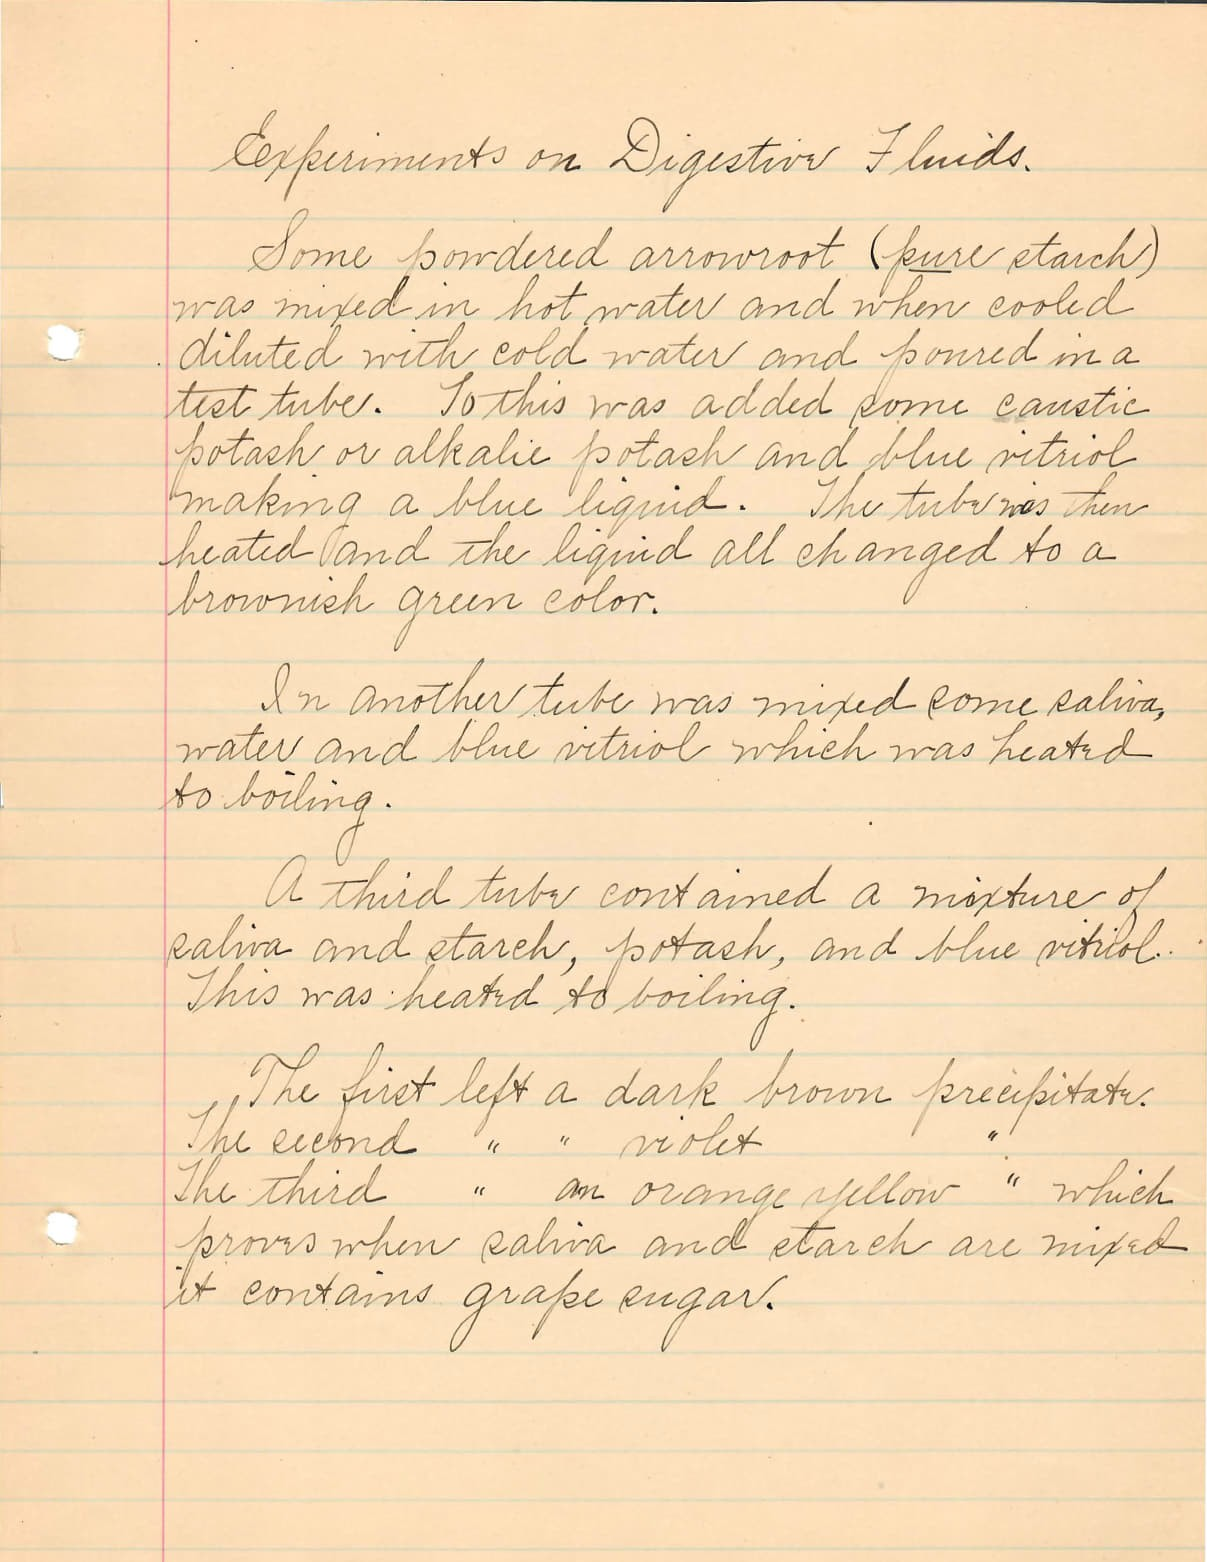 Experiments on Digestive Fluids.
Some powdered arrowroot (pure starch)
was mixed in hot water and when cooled
diluted with cold water and poured in a
test tube. To this was added some caustic
potash or alkalie potash and blue vitriol
making a blue liquid. The tube was then
heated and the liquid all changed to a
brownish green color.
In another tube was mixed some saliva,
water and blue vitriol which was heated
to boiling.
A third tube contained a mixture of
saliva and starch, potash, and blue vitriol.
This was heated to boiling.
The first left a dark brown precipitate.
The second " " violet "
The third " an orange yellow " which
proves when saliva and starch are mixed
it contains grape sugar.